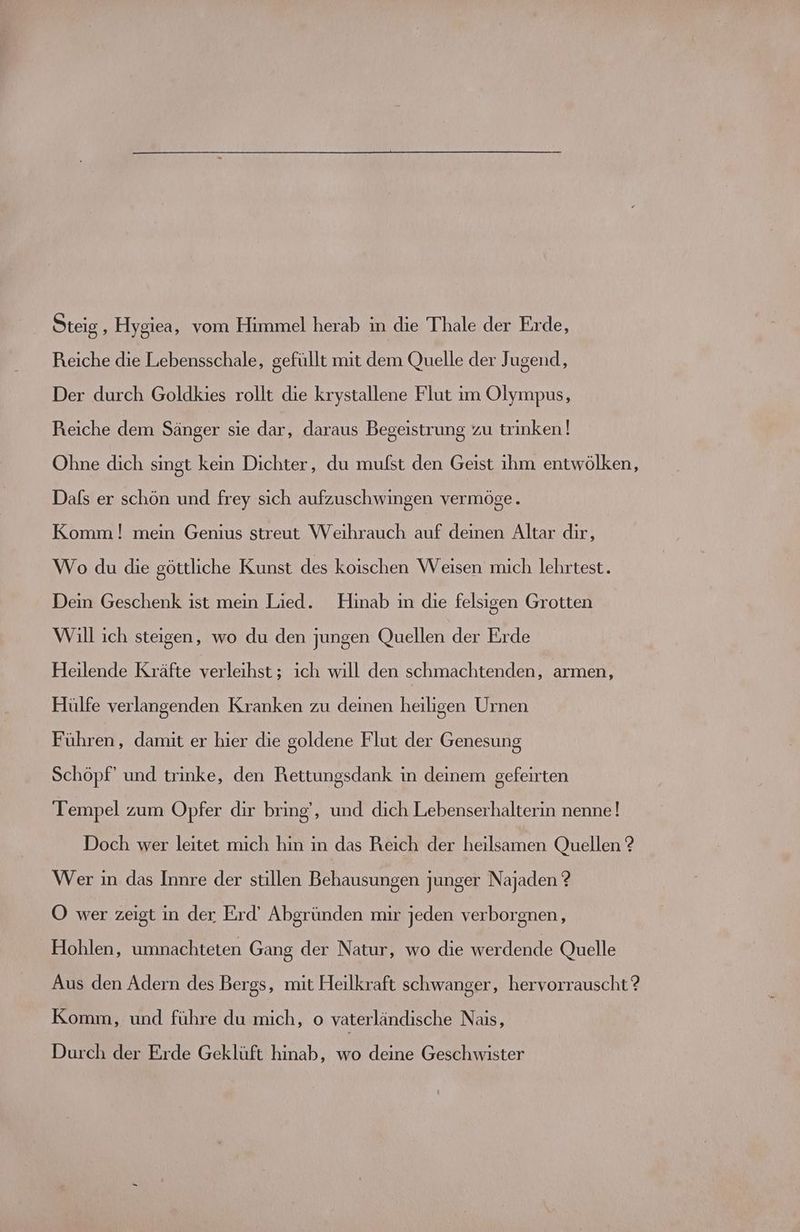 Steig, Hygiea, vom Himmel herab in die Thale der Erde,
Reiche die Lebensschale, gefüllt mit dem Quelle der Jugend,
Der durch Goldkies rollt die krystallene Flut im Olympus,
Reiche dem Sänger sie dar, daraus Begeistrung zu trinken!
Ohne dich singt kein Dichter, du muſst den Geist ihm entwölken,
Daſs er schön und frey sich aufzuschwingen vermöge.
Komm! mein Genius streut Weihrauch auf deinen Altar dir,
Wo du die göttliche Kunst des koischen Weisen mich lehrtest.
Dein Geschenk ist mein Lied. Hinab in die felsigen Grotten
Will ich steigen, wo du den jungen Quellen der Erde
Heilende Kräfte verleihst; ich will den schmachtenden, armen,
Hülfe verlangenden Kranken zu deinen heiligen Urnen
Führen, damit er hier die goldene Flut der Genesung
Schöpf' und trinke, den Rettungsdank in deinem gefeirten
Tempel zum Opfer dir bring', und dich Lebenserhalterin nenne!
Doch wer leitet mich hin in das Reich der heilsamen Quellen?
Wer in das Innre der stillen Behausungen junger Najaden?
O wer zeigt in der Erd' Abgründen mir jeden verborgnen,
Hohlen, umnachteten Gang der Natur, wo die werdende Quelle
Aus den Adern des Bergs, mit Heilkraft schwanger, hervorrauscht?
Komm, und führe du mich, o vaterländische Nais,
Durch der Erde Geklüft hinab, wo deine Geschwister